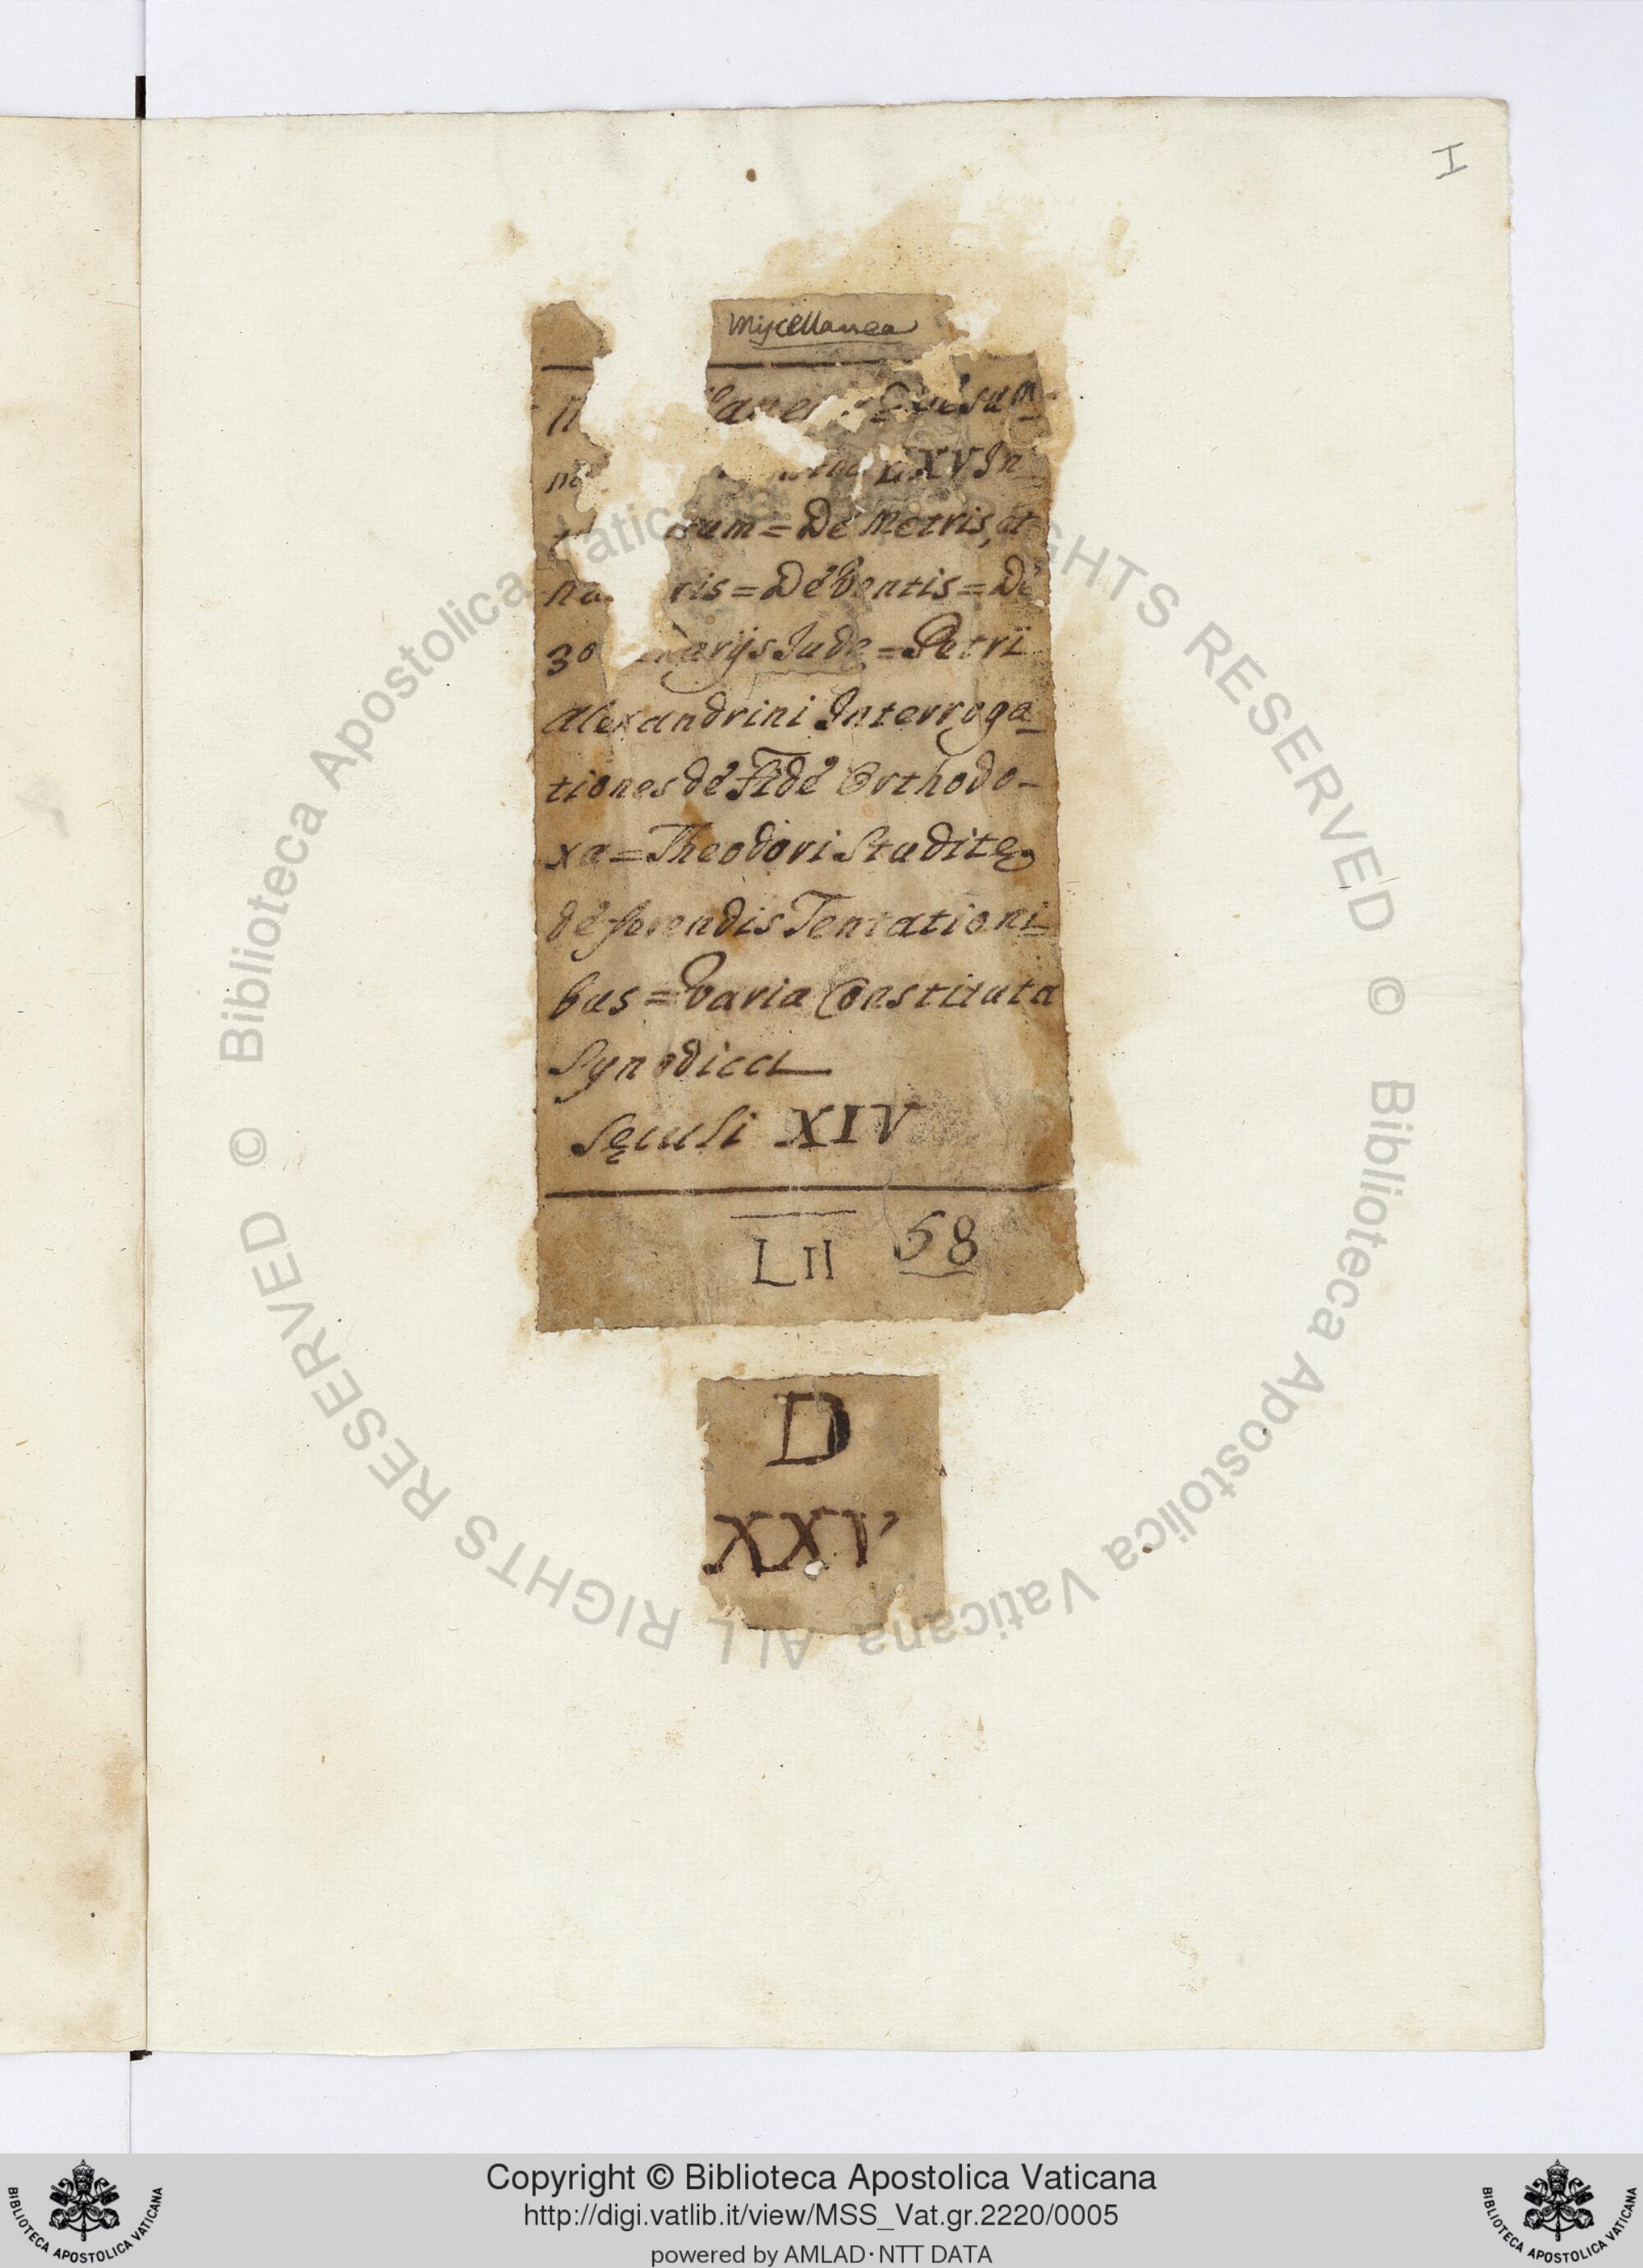 I
Miscellanea
LXV In
rum = De Metris, et
ris = De Ventis = De
30 arijs Iudę = Petri
Alexandrini Interroga
tiones de Fide Orthodo-
xa = Theodori Studitę
de ferendis Tentationi
bus = Varia Constituta
Synodica
Sęculi XIV
LII 58
D
XXV
© Biblioteca Apostolica Vaticana ALL RIGHTS RESERVED
© Biblioteca Apostolica Vaticana ALL RIGHTS RESERVED
Copyright © Biblioteca Apostolica Vaticana
http://digi.vatlib.it/view/MSS_Vat.gr.2220/0005
powered by AMLAD·NTT DATA
BIBLIOTECA APOSTOLICA VATICANA
BIBLIOTECA APOSTOLICA VATICANA